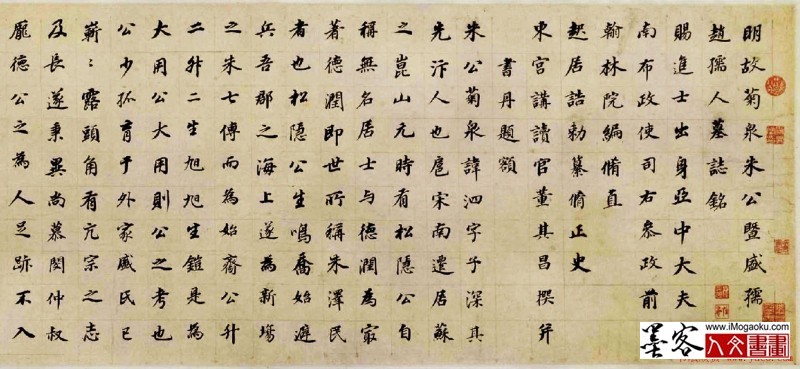 明故菊泉朱公暨盛孺
趙孺人墓誌銘
賜進士出身亞中大夫
南布政使司右參政前
翰林院編脩直
起居誥勑纂脩正史
東宮講讀官董其昌撰并
書丹題額
朱公菊泉諱泗字子深其
先汴人也扈宋南遷居蘇
之崑山元時有松隱公自
稱無名居士与德潤為最
著德潤即世所稱朱澤民
者也松隱公生鳴喬始避
兵吾郡之海上遂為新場
之朱七傳而為始齋公升
二升二生旭旭生鎧是為
大用公大用則公之考也
公少孤育于外家盛氏已
嶄〻露頭角有亢宗之志
及長遂秉異尚慕閔仲叔
龐德公之為人足跡不入
墨客
www.iMogaoku.com
人文書畫